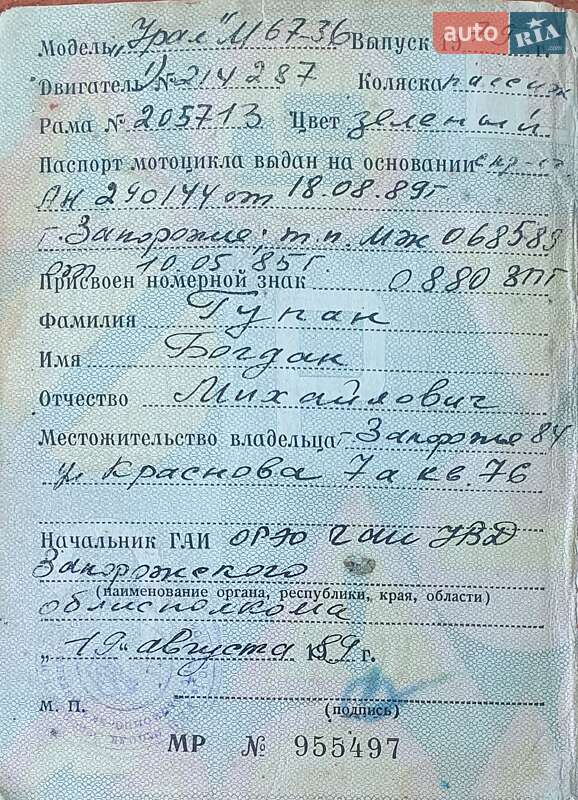 auto RIA.com
Модель „Урал" М67-36 Выпуск 19
Двигатель № 214287 Коляска пассаж
Рама № 205713 Цвет зеленый
Паспорт мотоцикла выдан на основании спр-сч.
АН 240144 от 18.08.89г
г. Запорожье; т.п. МЖ 068583
от 10.05.85г.
Присвоен номерной знак 0880 ЗПГ
Фамилия Гупан
Имя Богдан
Отчество Михайлович
Местожительство владельца г. Запорожье 84
ул Краснова 7а кв. 76
Начальник ГАИ ОРЭО ГАИ УВД
Запорожского
(наименование органа, республики, края, области)
облисполкома
„19" августа 1989 г.
М. П.
(подпись)
МР № 955497